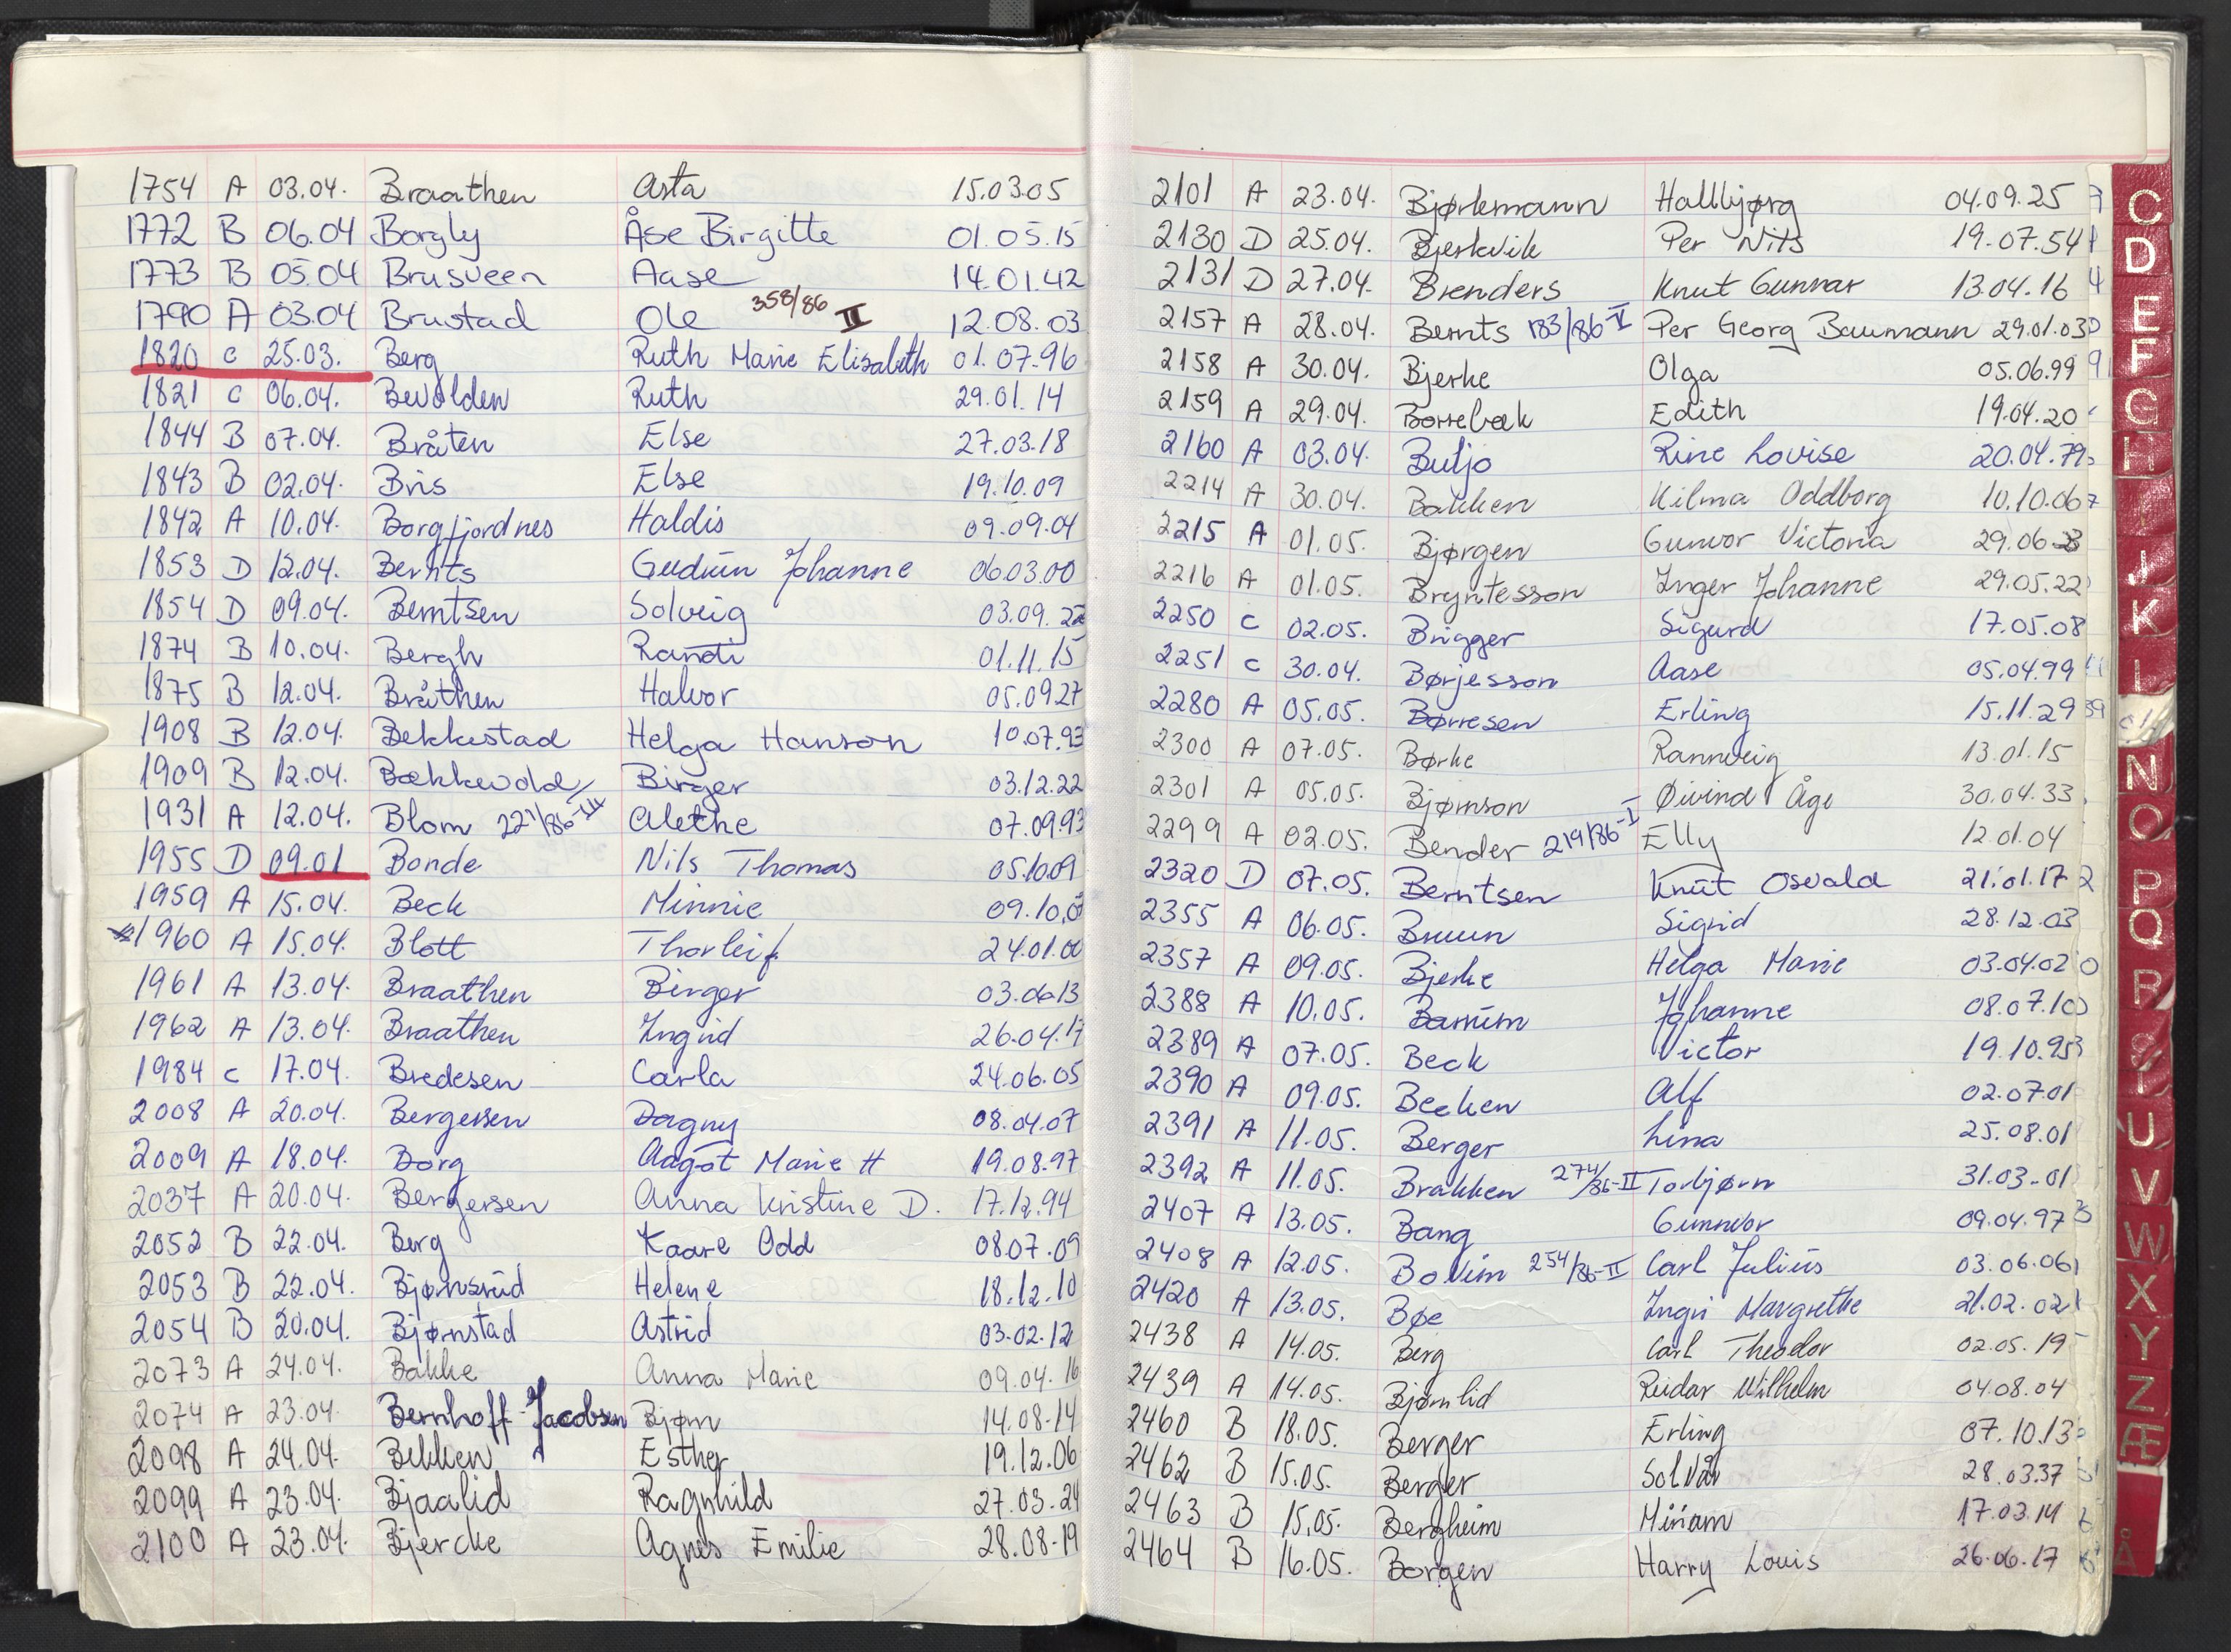 1754 A 03.04. Braathen Asta 15.03.05
1772 B 06.04 Borgly Åse Birgitte 01.05.15
1773 B 05.04 Brusveen Aase 14.01.42
1790 A 03.04 Brustad Ole 358/86 II 12.08.03
1820 C 25.03. Berg Ruth Marie Elisabeth 01.07.96
1821 C 06.04. Bevolden Ruth 29.01.14
1844 B 07.04. Bråten Else 27.03.18
1843 B 02.04. Bris Else 19.10.09
1842 A 10.04. Borgfjordnes Haldis 09.09.04
1853 D 12.04. Bernts Gudrun Johanne 06.03.00
1854 D 09.04. Berntsen Solveig 03.09.22
1874 B 10.04. Bergh Randi 01.11.15
1875 B 12.04. Bråthen Halvor 05.09.27
1908 B 12.04. Bekkestad Helga Hanson 10.07.93
1909 B 12.04. Bækkevold Birger 03.12.22
1931 A 12.04. Blom 221/86-III Alethe 07.09.93
1955 D 09.01 Bonde Nils Thomas 05.10.09
1959 A 15.04. Beck Minnie 09.10.
1960 A 15.04. Blott Thorleif 24.01.00
1961 A 13.04. Braathen Birger 03.06.13
1962 A 13.04. Braathen Ingrid 26.04.17
1984 C 17.04. Bredesen Carla 24.06.05
2008 A 20.04. Bergersen Dagny 08.04.07
2009 A 18.04. Borg Aagot Marie H 19.08.97
2037 A 20.04. Bergersen Anna Kristine D. 17.12.94
2052 B 22.04. Berg Kaare Odd 08.07.09
2053 B 22.04. Bjørnsrud Helene 18.12.10
2054 B 20.04. Bjørnstad Astrid 03.02.12
2073 A 24.04. Bakke Anna Marie 09.04.16
2074 A 23.04. Bernhoff-Jacobsen Bjørn 14.08.14
2098 A 24.04. Bekken Esther 19.12.06
2099 A 23.04. Bjaalid Ragnhild 27.03.24
2100 A 23.04. Bjercke Agnes Emilie 28.08.19
2101 A 23.04. Bjørkmann Hallbjørg 04.09.25
2130 D 25.04. Bjerkvik Per Nils 19.07.54
2131 D 27.04. Brenders Knut Gunnar 13.04.16
2157 A 28.04. Bernts 183/86-I Per Georg Baumann 29.01.03
2158 A 30.04. Bjerke Olga 05.06.99
2159 A 29.04. Borrebæk Edith 19.04.20
2160 A 03.04. Buljo Rine Lovise 20.04.79
2214 A 30.04. Bakken Hilma Oddborg 10.10.06
2215 A 01.05. Bjørgen Gunvor Victoria 29.06
2216 A 01.05. Bryntesson Inger Johanne 29.05.22
2250 C 02.05. Brigger Sigurd 17.05.08
2251 C 30.04. Børjesson Aase 05.04.99
2280 A 05.05. Børresen Erling 15.11.29
2300 A 07.05. Børke Rannveig 13.01.15
2301 A 05.05. Bjørnson Øivind Åge 30.04.33
2299 A 02.05. Bender 219/86-I Elly 12.01.04
2320 D 07.05. Berntsen Knut Osvald 21.01.17
2355 A 06.05. Bruun Sigrid 28.12.03
2357 A 09.05. Bjerke Helga Marie 03.04.02
2388 A 10.05. Johanne 08.07.10
2389 A 07.05. Beck Victor 19.10.95
2390 A 09.05. Becken Alf 02.07.01
2391 A 11.05. Berger Lina 25.08.01
2392 A 11.05. Brakken 274/86-II Torbjørn 31.03.01
2407 A 13.05. Bang Gunnvor 09.04.97
2408 A 12.05. Bovim 254/86-II Carl Julius 03.06.06
2420 A 13.05. Bøe Ingri Margrethe 21.02.02
2438 A 14.05. Berg Carl Theodor 02.05.19
2439 A 14.05. Bjørnlid Reidar Wilhelm 04.08.04
2460 B 18.05. Berger Erling 07.10.13
2462 B 15.05. Berger Solvår 28.03.37
2463 B 15.05. Bergheim Miriam 17.03.14
2464 B 16.05. Borgen Harry Louis 26.06.17
C
D
E
F
G
H
J
K
L
N
O
P
Q
R
S
T
U
V
W
X
Y
Z
Æ
Å